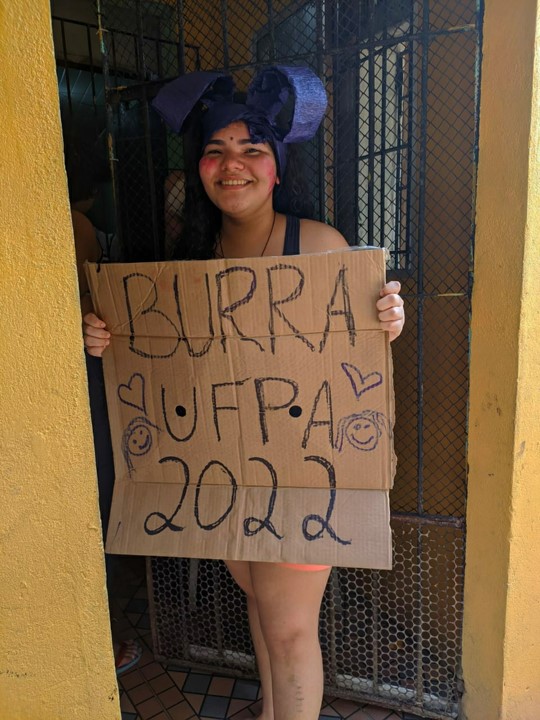 BURRA
UFPA
2022